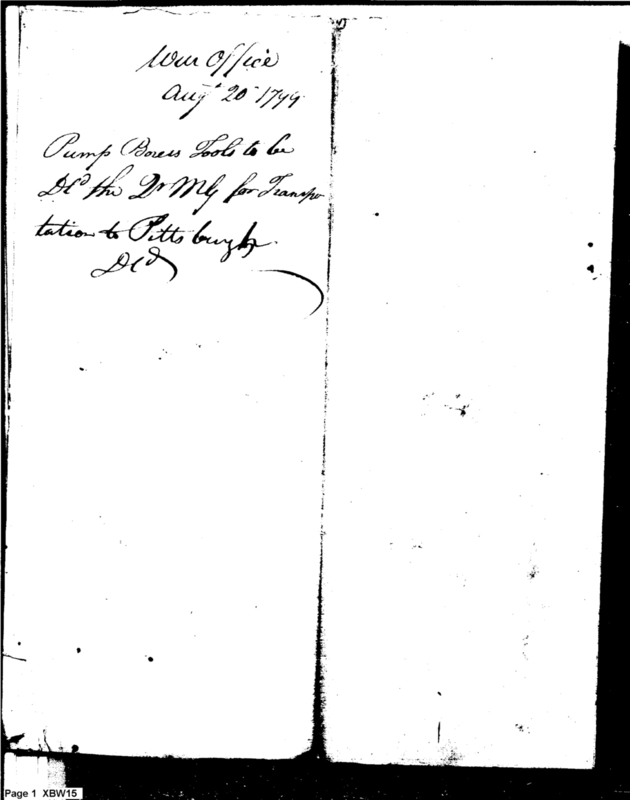 War Office
Augt 20 1799
Pump Borers Tools to be
Dld the Qr Mr for Transpor
tation to Pittsburgh
Dld
Page 1 XBW15